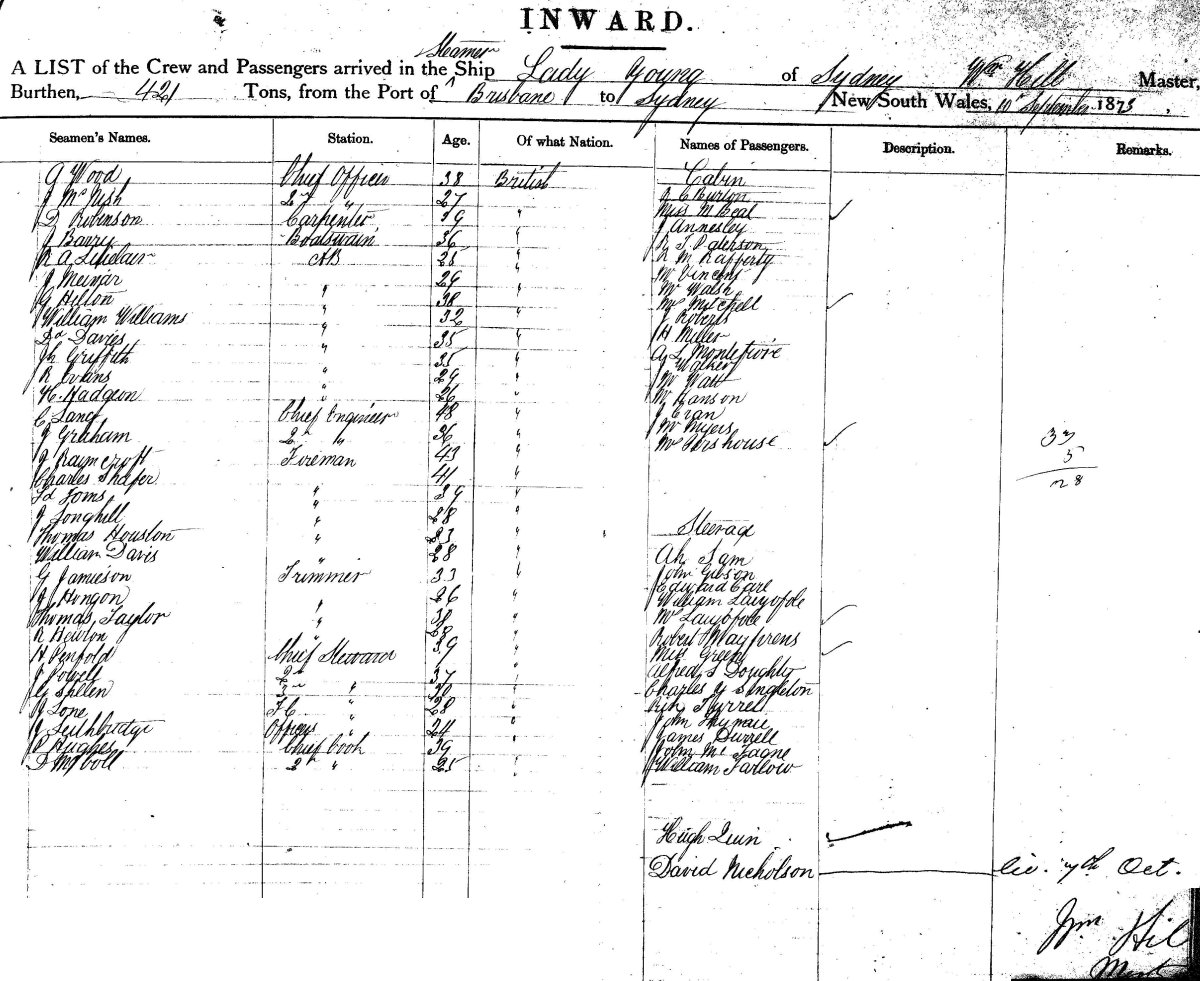 INWARD.
Steamer
A LIST of the Crew and Passengers arrived in the Ship Lady Young of Sydney Wm Hill Master,
Burthen, 421 Tons, from the Port of Brisbane to Sydney New South Wales, 10 September 1875.
Seamen's Names. Station. Age. Of what Nation. Names of Passengers. Description. Remarks.
G Wood Chief Officer 38 British Cabin
J McNish 2d " 27 " A C Burton
D Robinson Carpenter 39 " Miss M Beal
J Barry Boatswain 36 " J Annesley
R A Sinclair AB 28 " R J Paterson
J Meinar 29 " R M Rafferty
G Hilton " 38 " Mr Vincent
William Williams " 32 " Mr Walsh
Dd Davies " 35 " Mrs Mitchell
Jh Griffith " 35 " J Roberts
R Evans " 29 " H Miller
H. Hadgeon " 26 " A L Montefiore
C Lang Chief Engineer 48 " J Walker
J Graham 2d " 36 " Mr Watt
J Raymcroft Fireman 43 " Mr Ranson
Charles Shafer 41 " J Evan
Toms " 39 " Mr Myers
J Longhill " 28 " Mrs
33
5
28
Thomas Houston " 23 " Steerage
William Davis " 28 " Ah Sam
G Jamieson Trimmer 33 " John Gibson
J " 26 " Edward Earl
Thomas Taylor " 38 " William
R Newton " 28 " Mrs
H Penfold Chief Steward 39 " Robert
J Powell 2d " 37 " Miss Green
G 3rd " " Alfred S Doughty
J Lone F.C. " 28 " Charles Y Singleton
J Lethbridge Officers " 24 " Turrell
P Hughes Chief Cook 39 " John
D 2d " 25 " James Durrell
John
William Farlow
Hugh Quin
David Nicholson 7th Oct.
Wm Hil